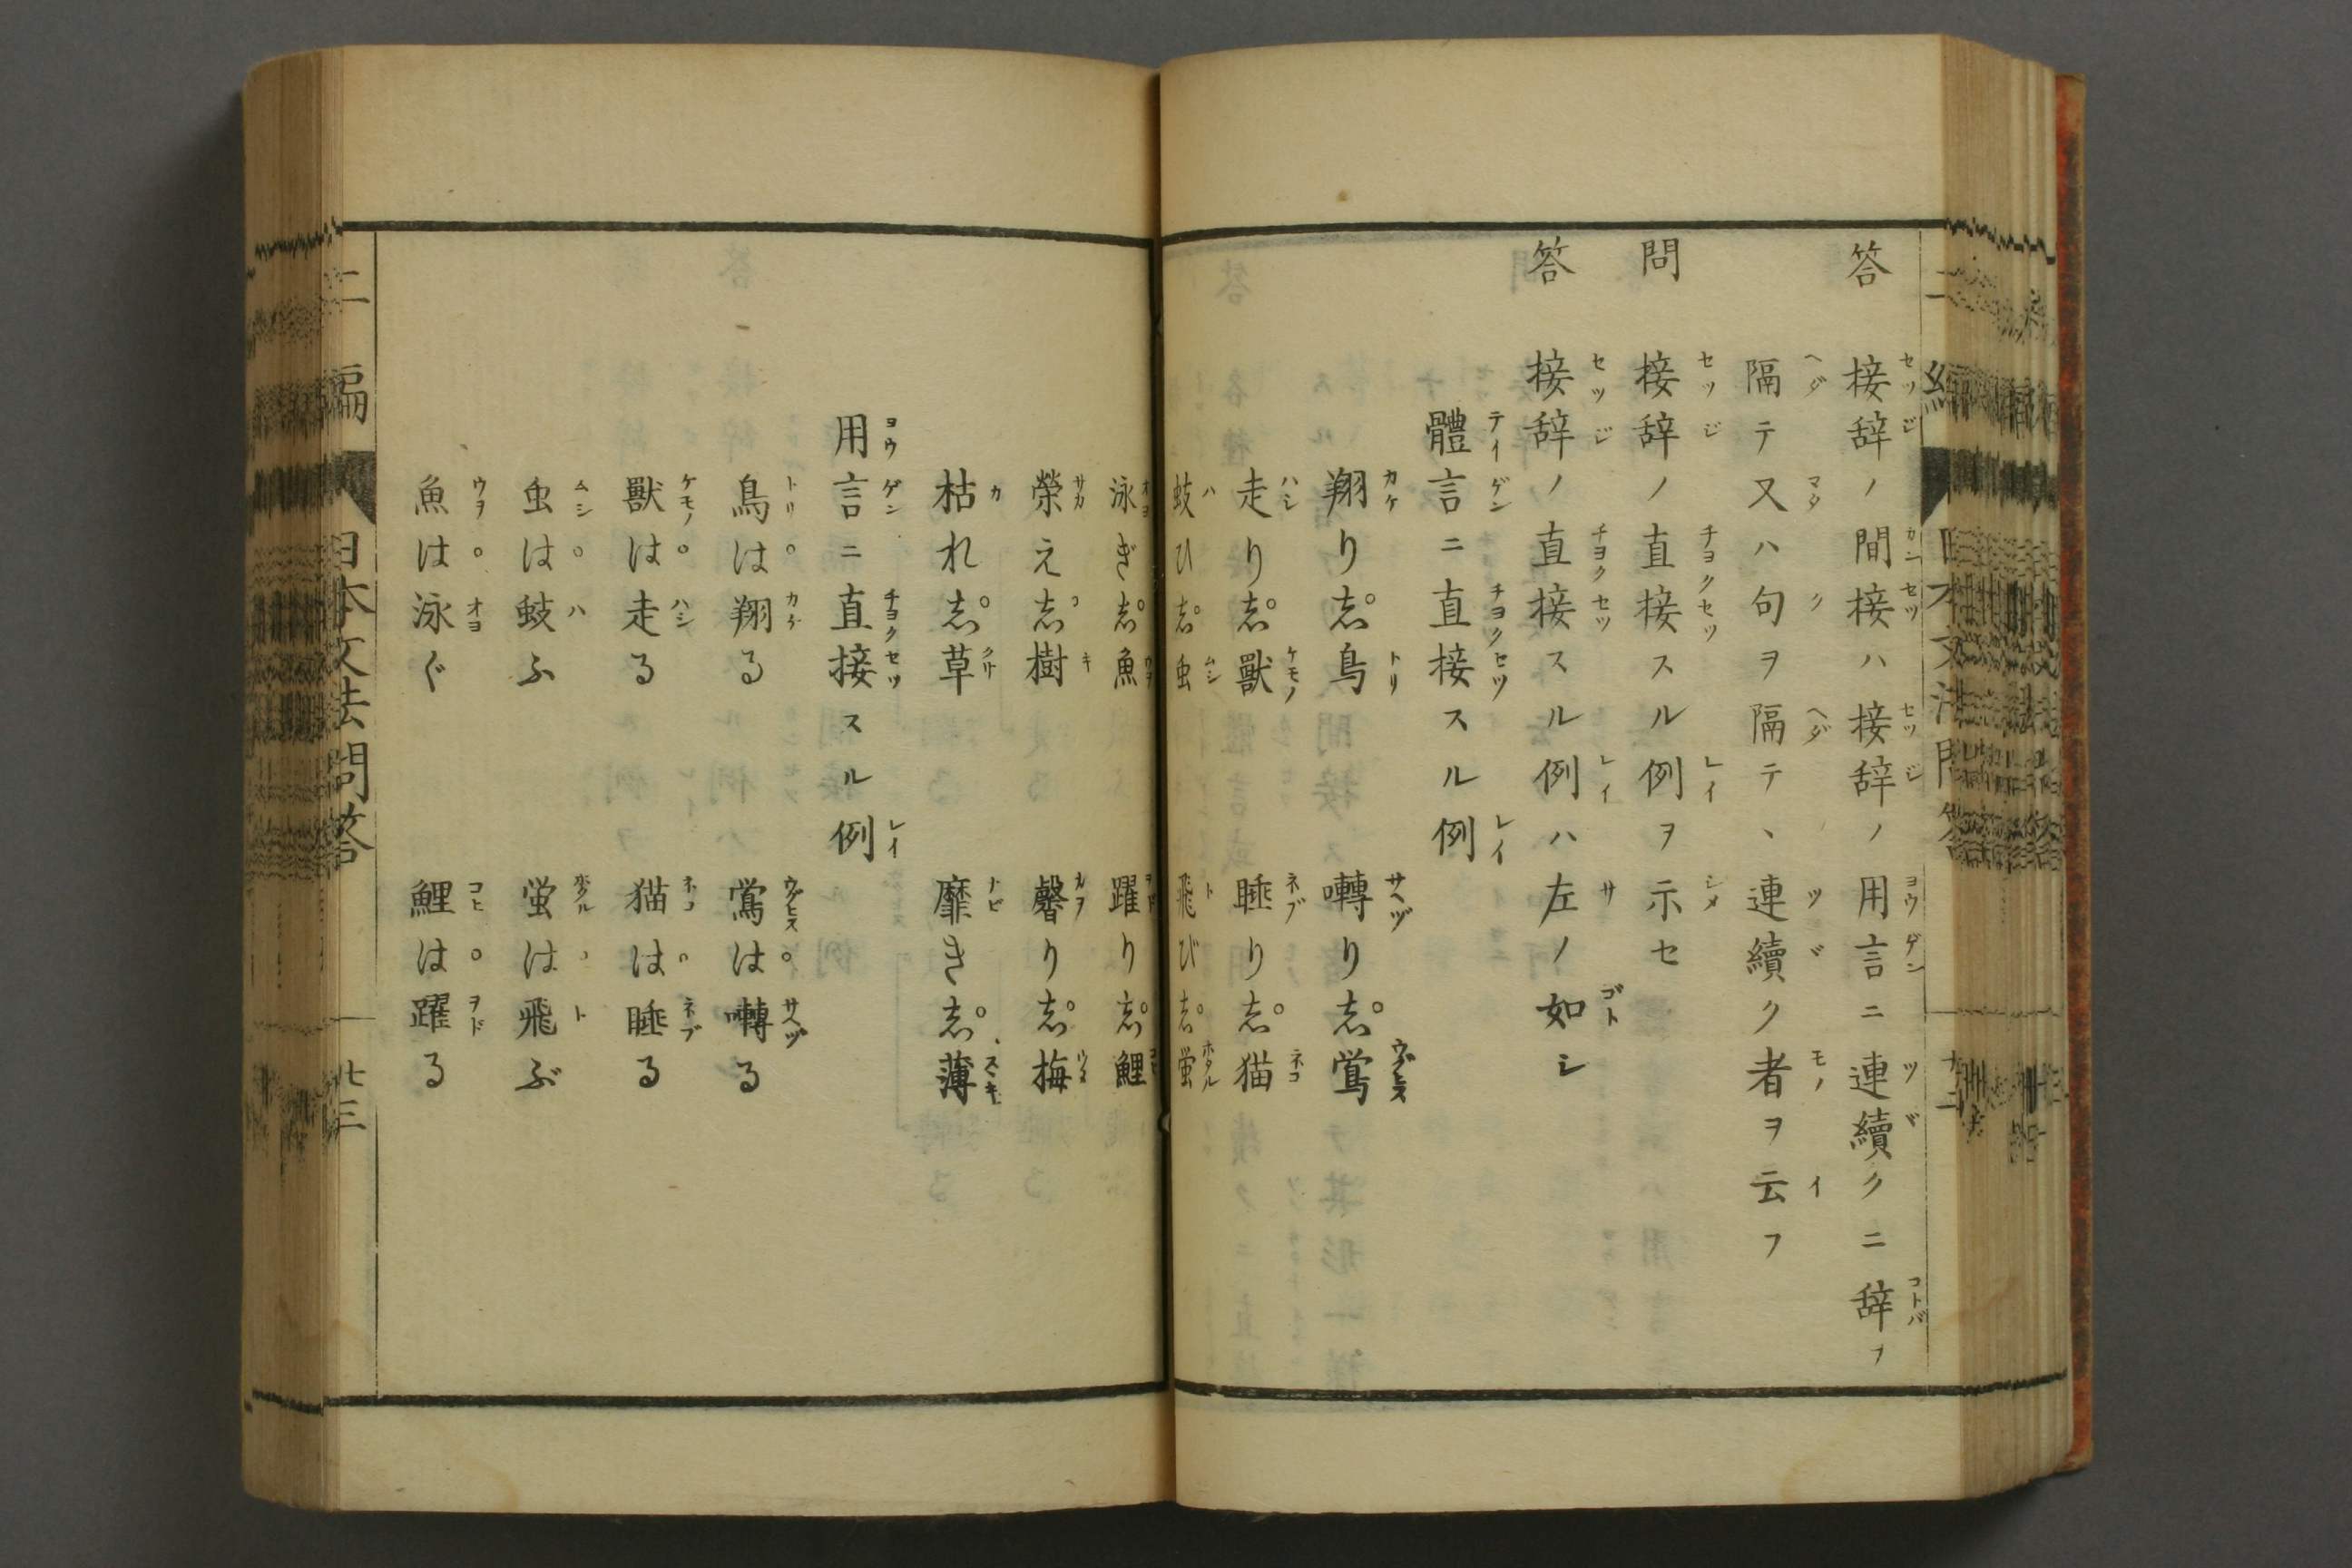 答 接辞ノ間接ハ接辞ノ用言ニ連續クニ辞ヲ
隔テ又ハ句ヲ隔テ、連續ク者ヲ云フ
問 接辞ノ直接スル例ヲ示セ
答 接辞ノ直接スル例ハ左ノ如シ
體言ニ直接スル例
翔り志鳥 囀り志鶯
走り志獸 睡り志猫
蚑ひ志虫 飛び志蛍
泳ぎ志魚 躍り志鯉
榮え志樹 馨り志梅
枯れ志草 靡き志薄
用言ニ直接スル例
鳥は翔る 鶯は囀る
獸は走る 猫は睡る
虫は蚑ふ 蛍は飛ぶ
魚は泳ぐ 鯉は躍る
二編 日本文法問答 七三